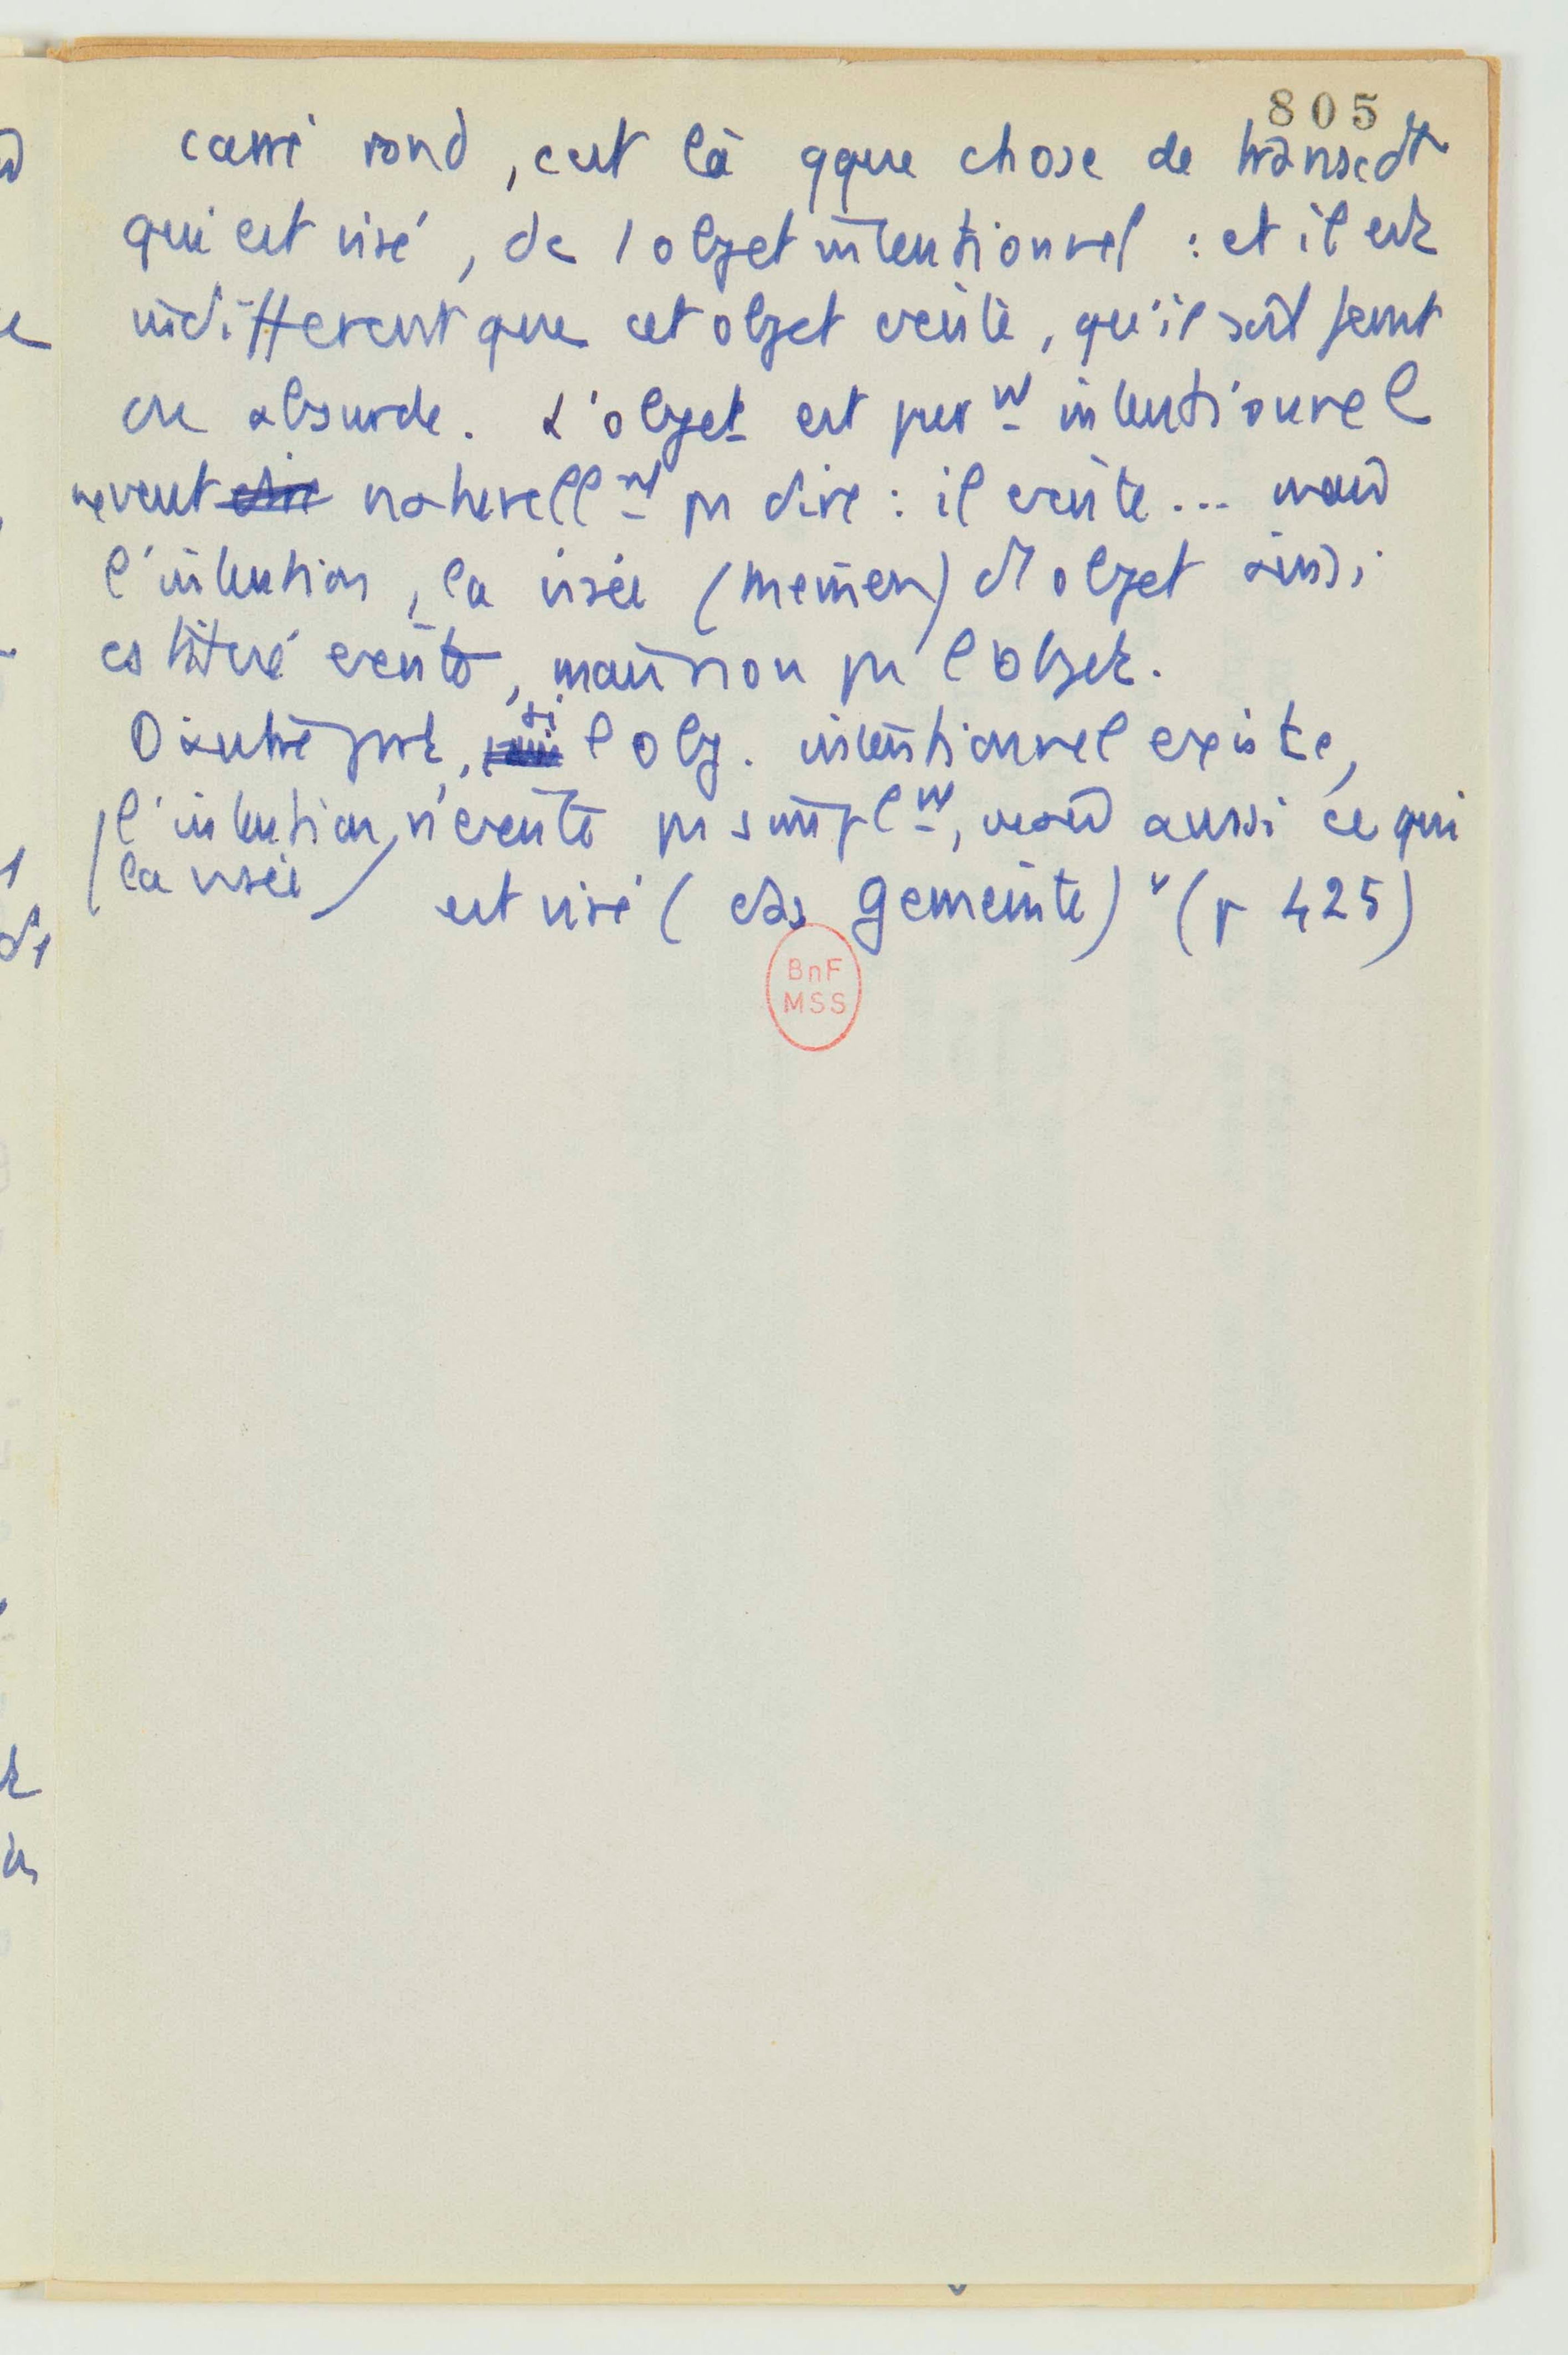 805
carré rond, c'est là qque chose de transcdt
qui est visé, de l'objet intentionnel : et il est
indifferent que cet objet existe, qu'il soit feint
ou absurde. L'objet est purmt intentionnel
ne veut dire naturellmt pas dire : il existe... mais
l'intention, la visée (meinen) d'1 objet ainsi
existe, mais non pas l'objet.
D'autre part, si l'obj. intentionnel existe,
l'intention, n'existe pas simplmt, mais aussi ce qui
la visée
est visé (das Gemeinte) " (p 425)
BnF
MSS